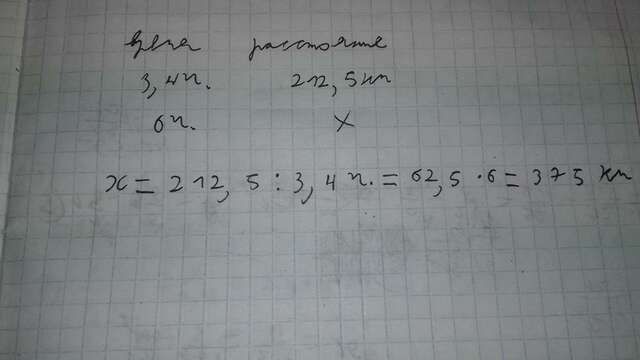 время расстояние
3,4ч. 212,5км
6ч. х
х = 212,5 : 3,4 ч. = 62,5 · 6 = 375 км